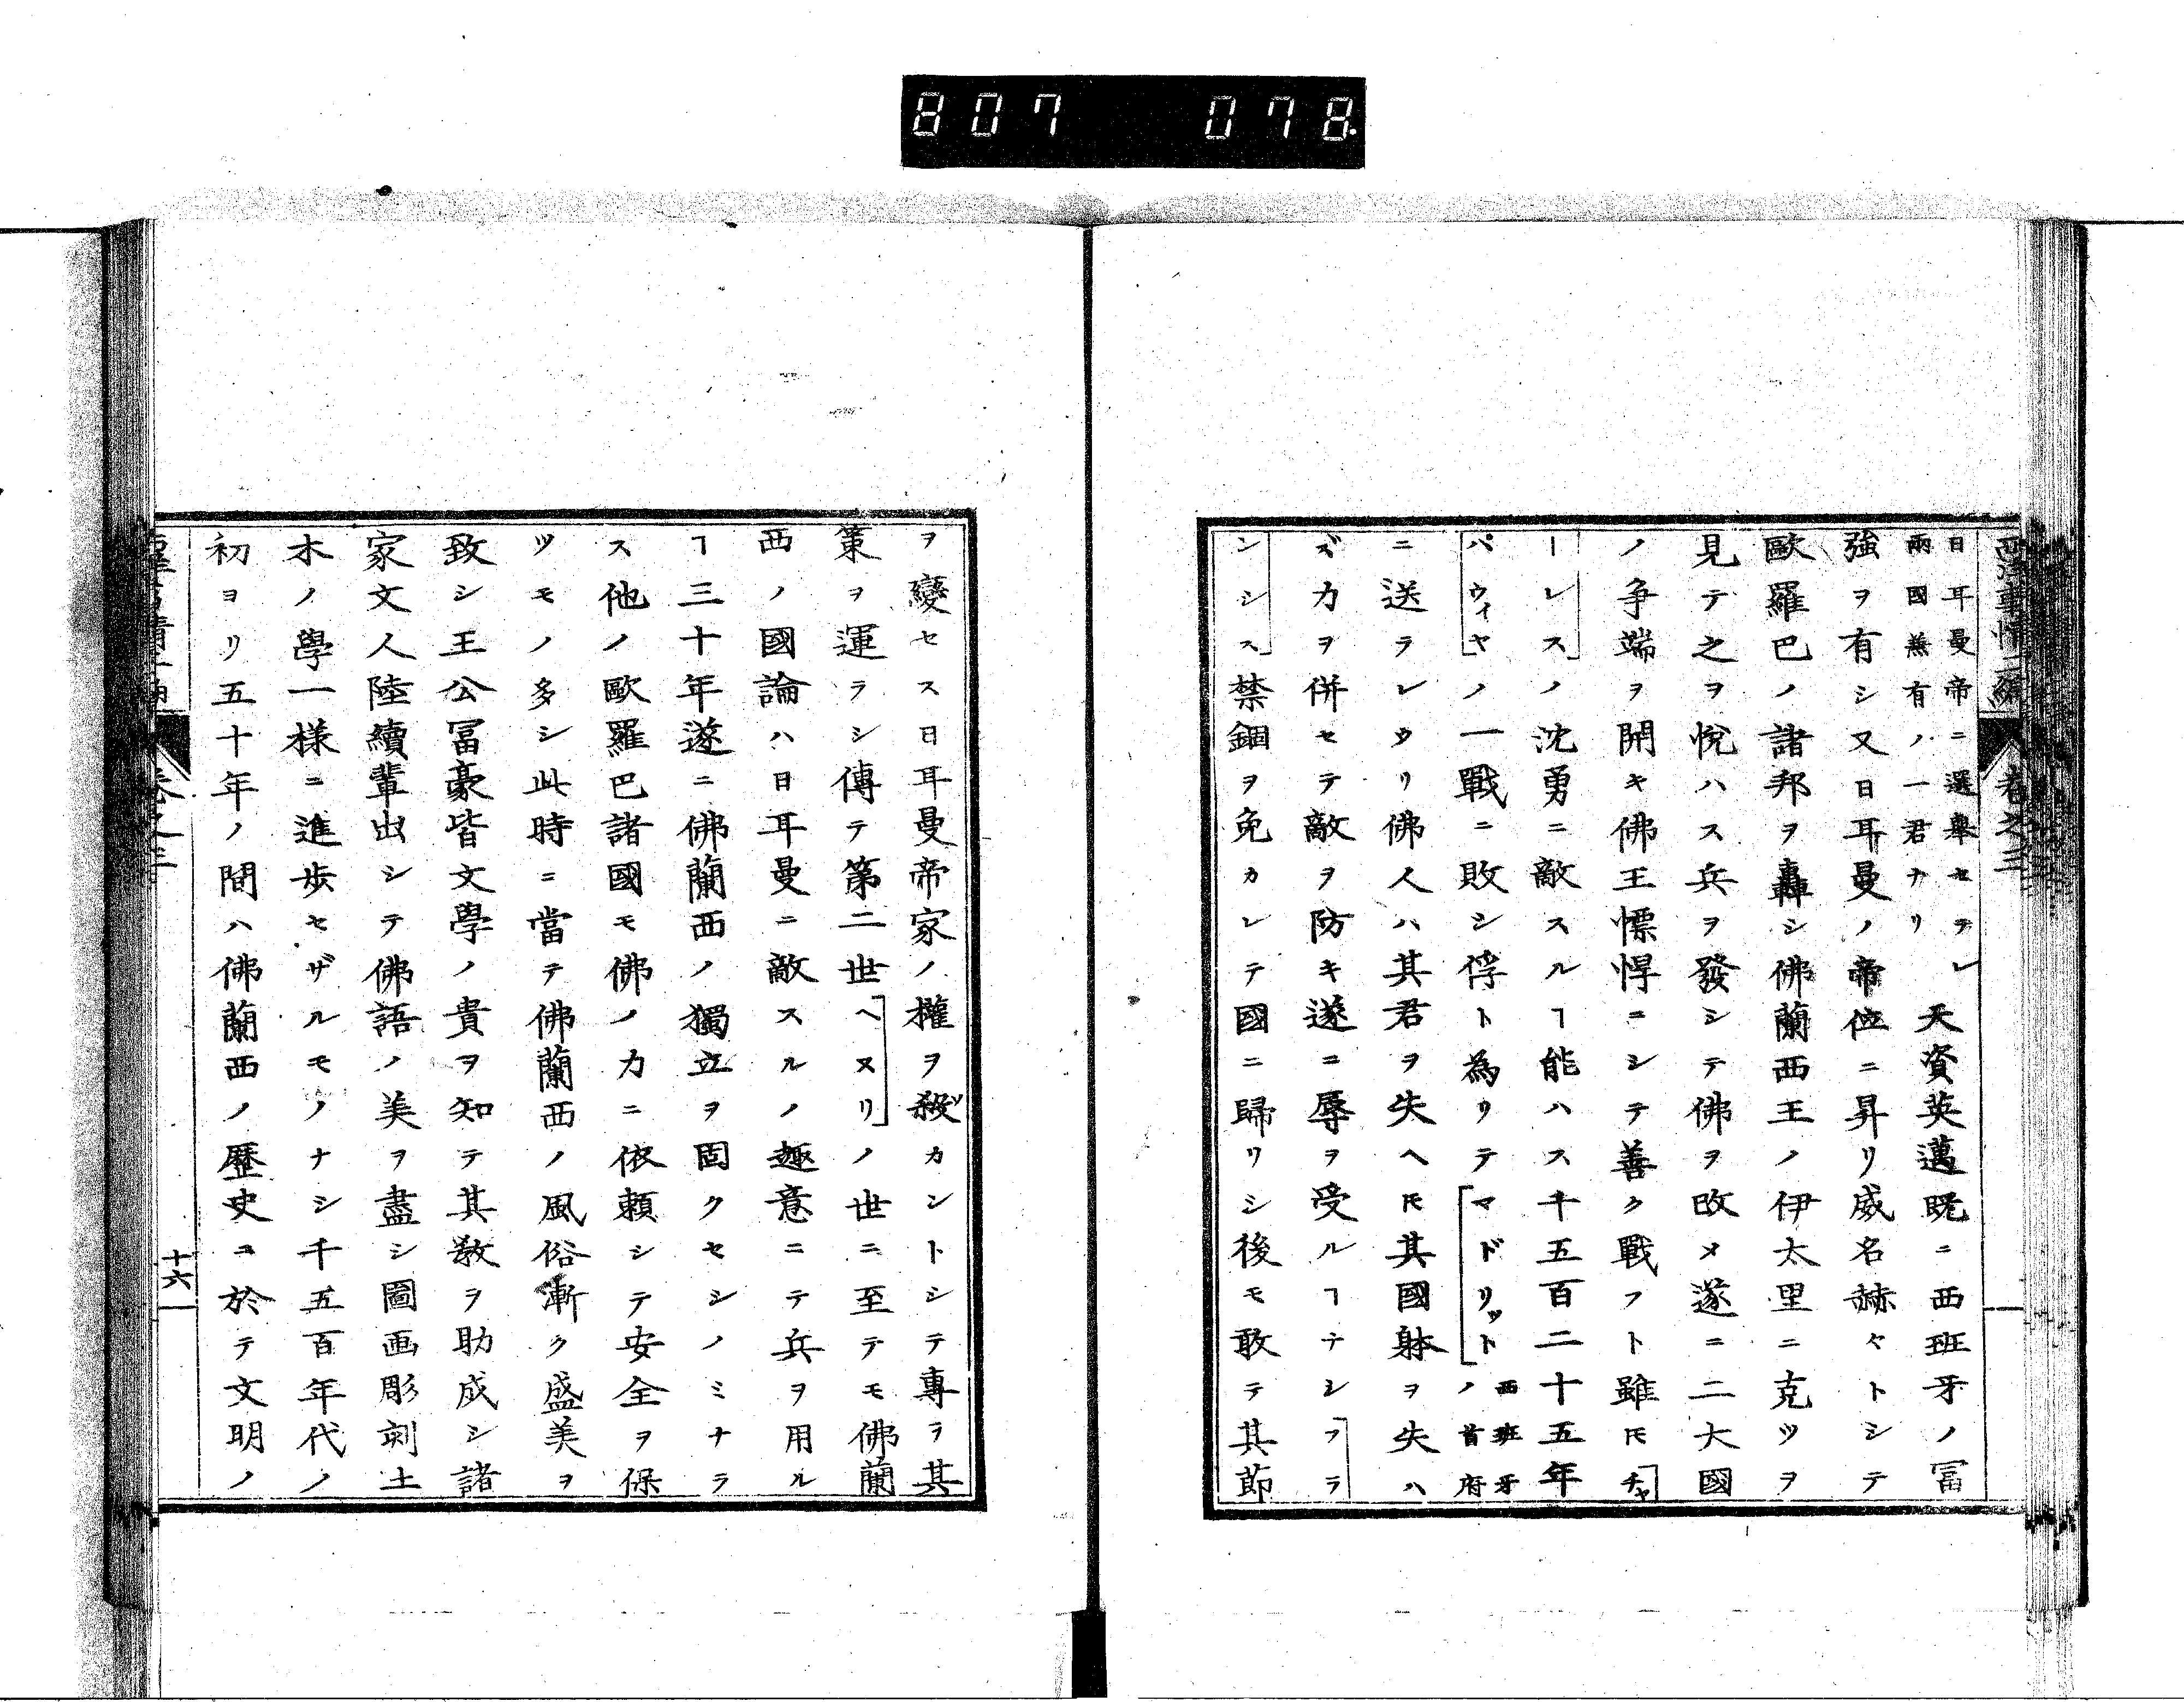 807 078
西洋事情二編 巻之三
日耳曼帝ニ選擧セラレ
兩國無有ノ一君ナリ
天資英邁既ニ西班牙ノ冨
強ヲ有シ又日耳曼ノ帝位ニ昇リ威名赫々トシテ
歐羅巴ノ諸邦ヲ轟シ佛蘭西王ノ伊太里ニ克ツヲ
見テ之ヲ悅ハス兵ヲ發シテ佛ヲ攻メ遂ニ二大國
ノ争端ヲ開キ佛王慓悍ニシテ善ク戰フト雖𪜈「チャ
ーレス」ノ沈勇ニ敵スルヿ能ハス千五百二十五年
「パウィヤ」ノ一戰ニ敗シ俘ト為リテ「マドリット」西班牙ノ首府
ニ送ラレタリ佛人ハ其君ヲ失ヘ𪜈其國躰ヲ失ハ
ズカヲ併セテ敵ヲ防キ遂ニ辱ヲ受ルヿナシ「フラ
ンシス」禁錮ヲ免カレテ國ニ歸リシ後モ敢テ其節
ヲ變セス日耳曼帝家ノ權ヲ殺カントシテ專ラ其
策ヲ運ラシ傳テ第二世「ヘヌリ」ノ世ニ至テモ佛蘭
西ノ國論ハ日耳曼ニ敵スルノ趣意ニテ兵ヲ用ル
ヿ三十年遂ニ佛蘭西ノ獨立ヲ固クセシノミナラ
ス他ノ歐羅巴諸國モ佛ノカニ依頼シテ安全ヲ保
ツモノ多シ此時ニ當テ佛蘭西ノ風俗漸ク盛美ヲ
致シ王公冨豪皆文學ノ貴ヲ知テ其教ヲ助成シ諸
家文人陸續輩出シテ佛語ノ美ヲ盡シ圖画彫刻土
木ノ學一様ニ進歩セザルモノナシ千五百年代ノ
初ヨリ五十年ノ間ハ佛蘭西ノ歴史ニ於テ文明ノ
十六